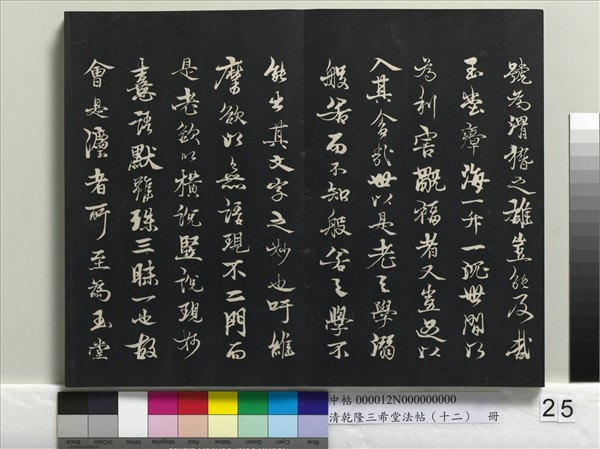 號為渭獵之雄豈能及哉
玉堂瘴海一升一沉世間以
為利害覼福者又豈足以
入其舍哉世以是老之學溺
般若而不知般若之學不
能出其文字之妙也吁維
摩欲以無語現不二門而
是老欲以橫說豎說現抄
意語默雖殊三昧一也故
會是濃者所至為玉堂
中帖 000012N000000000
清乾隆三希堂法帖（十二） 冊
25
Black
3/Color
White
Magenta
Red
Yellow
Green
Cyan
Blue